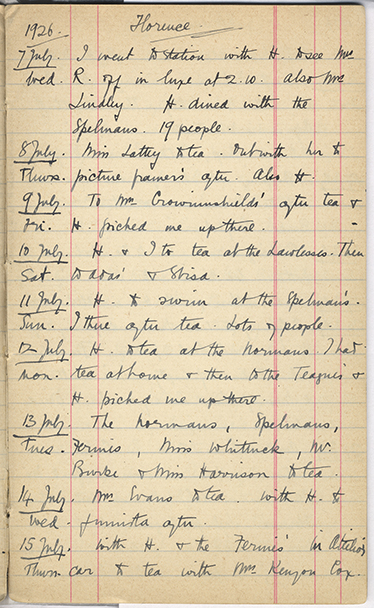 1926. Florence.
7 July. I went to station with H. to see Mrs
Wed. R. off in luxe at 2.10. also Mrs
Lindley. H. dined with the
Spelmans. 19 people.
8 July. Miss Lattey to tea. Out with her to
Thurs. picture framer's after. Also H.
9 July. To Mrs Crowninshields' after tea &
Fri. H. picked me up there.
10 July. H. & I to tea at the Lawlesses. Then
Sat. to & Strisa.
11 July. H. to swim at the Spelman's.
Sun. I there after tea. Lots of people.
12 July. H. to tea at the Normans. I had
Mon. tea at home & then to the Teagues &
H. picked me up there.
13 July. The Normans, Spelmans,
Tues. Fermis, Miss Whittuck, Mr.
Burke & Miss Harrison to tea.
14 July. Mrs Evans to tea. with H. to
Wed. after.
15 July. With H. & the Fermis' in
Thurs. car to tea with Mrs Kenyon Cox.